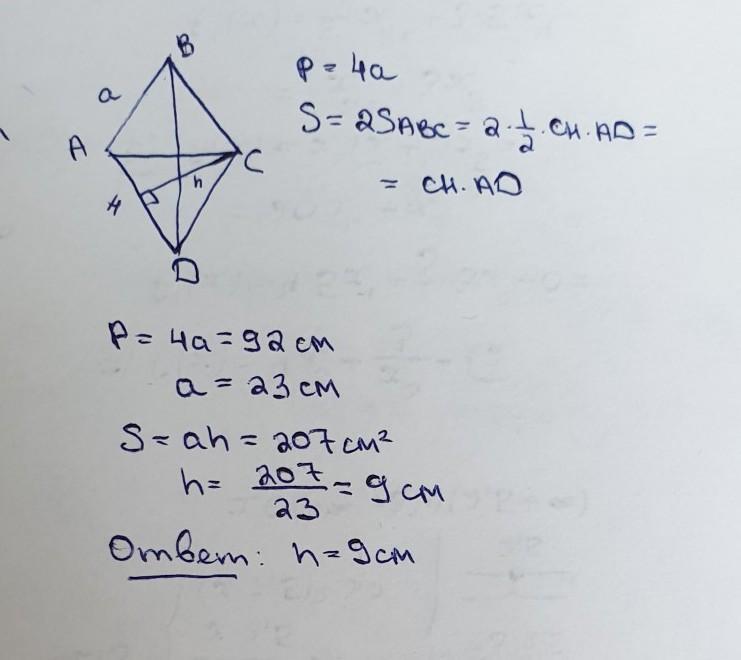 B
a
A
C
h
H
D
P = 4a
S = 2SABC = 2·1/2·CH·AD =
= CH·AD
P = 4a = 92 см
a = 23 см
S = ah = 207 см²
h = 207/23 = 9 см
Ответ: h = 9 см